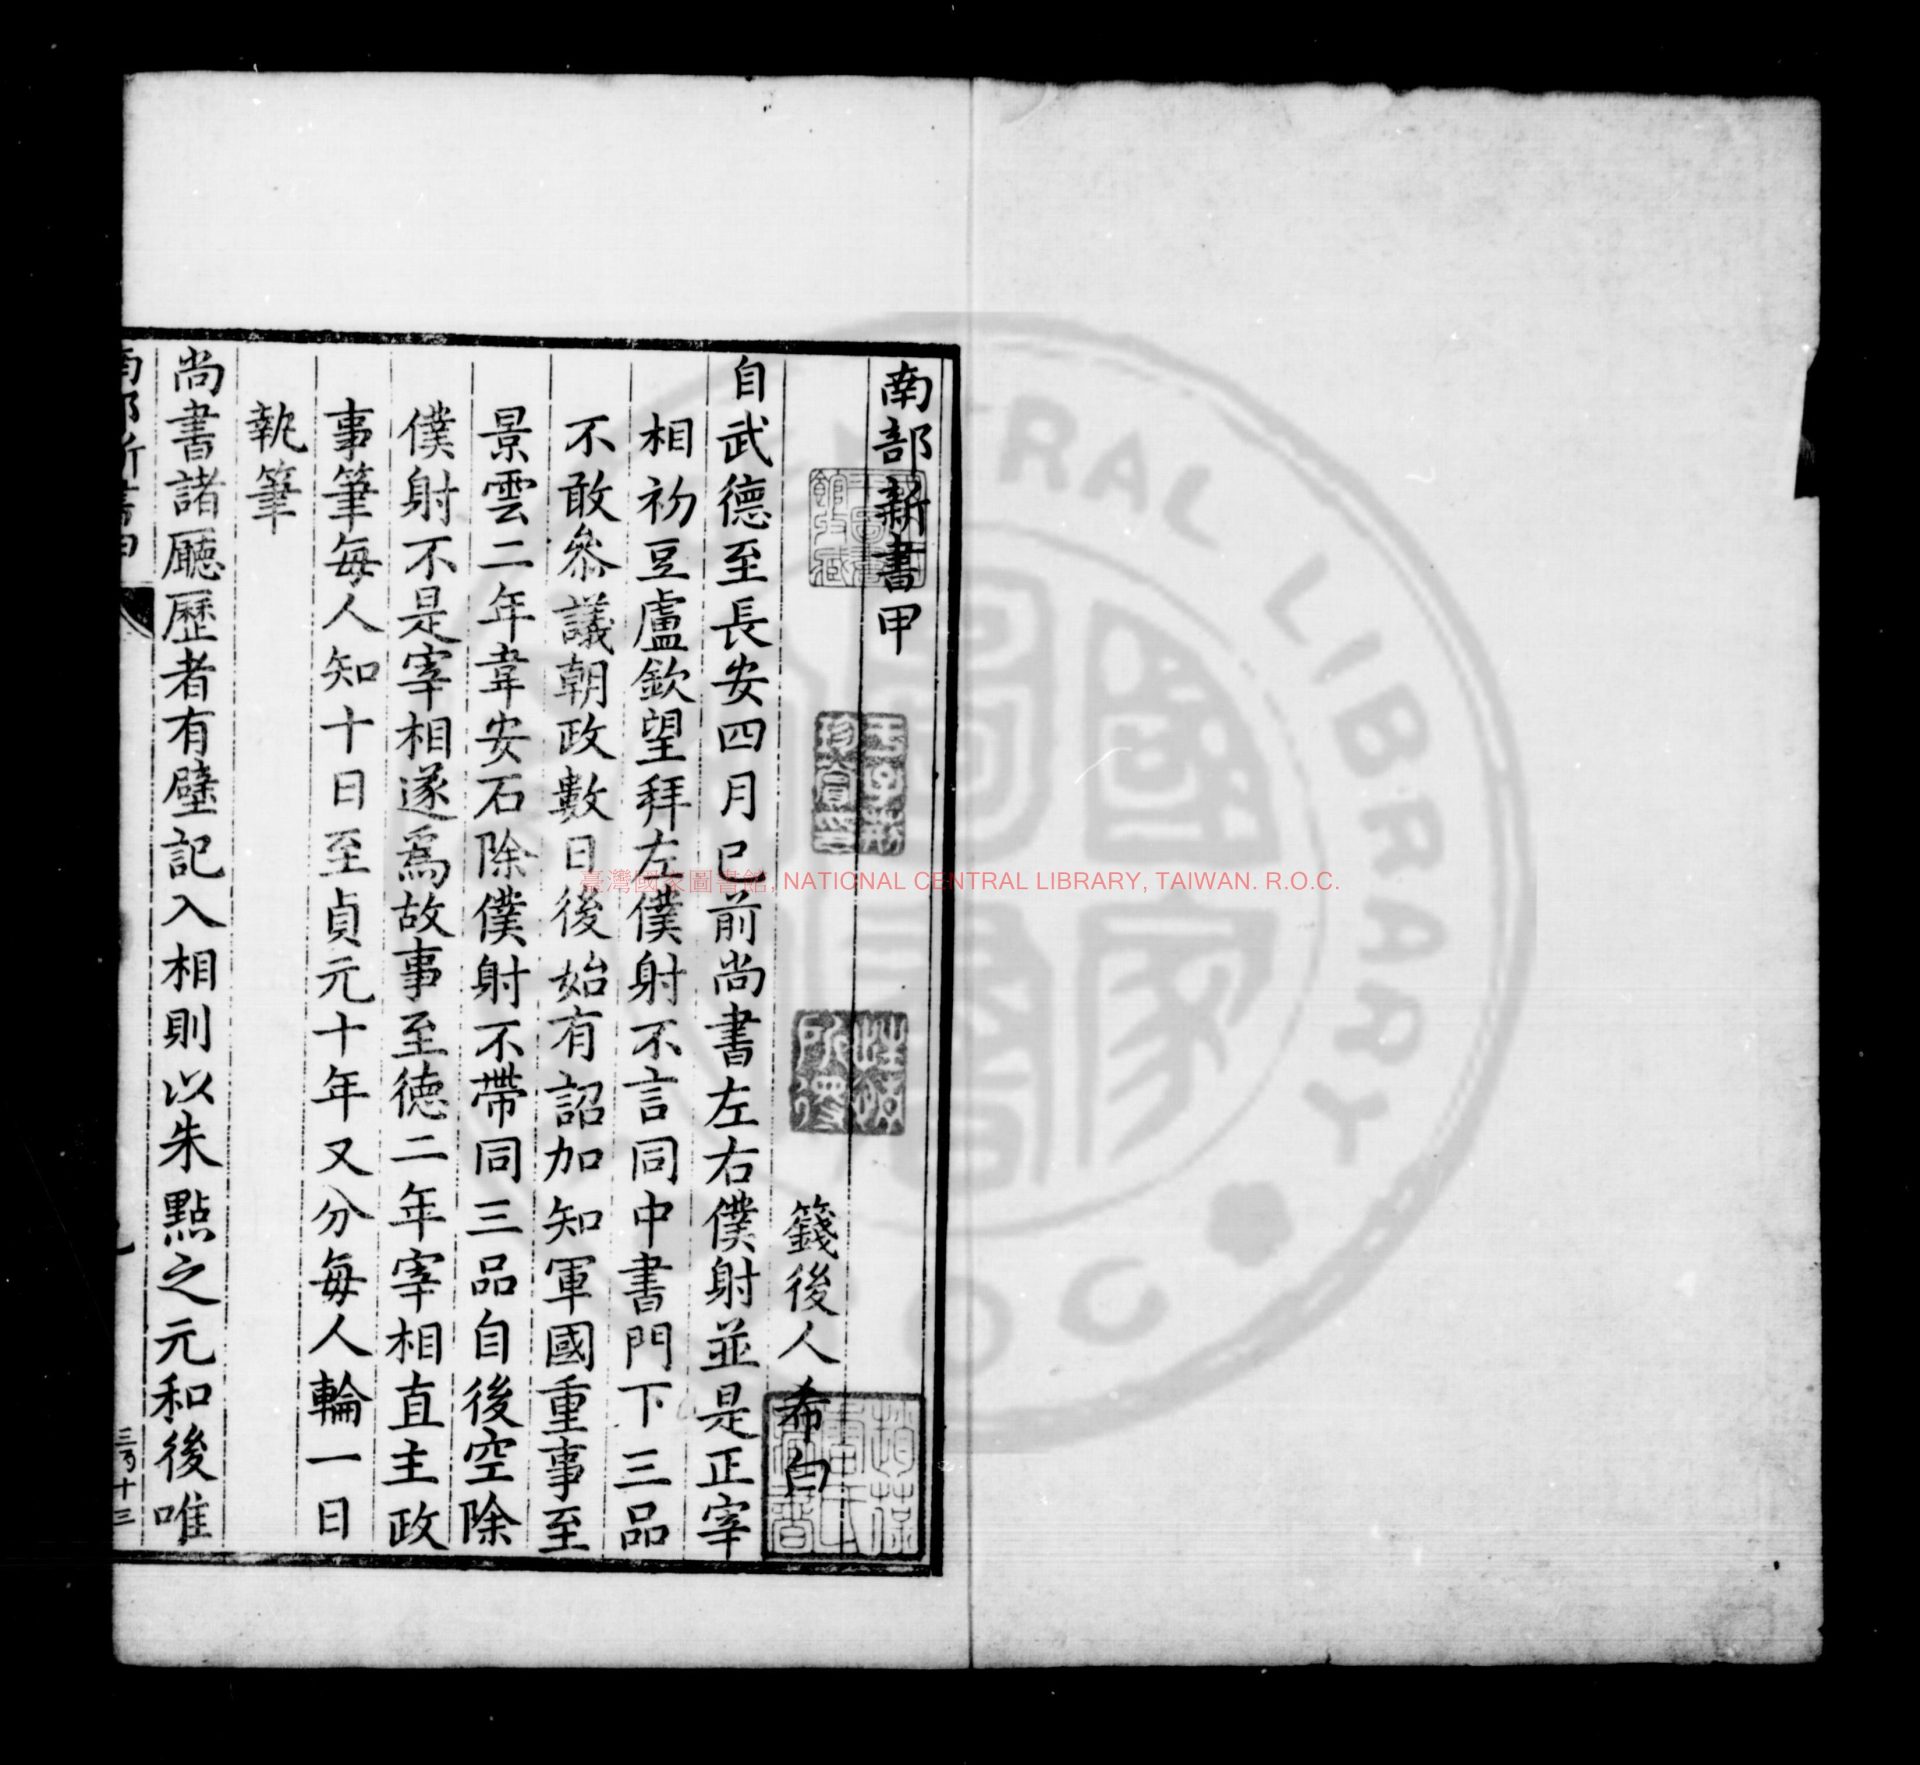 南部新書甲
籛後人希白
自武德至長安四月已前尚書左右僕射並是正宰
相初豆盧欽望拜左僕射不言同中書門下三品
不敢叅議朝政數日後始有詔加知軍國重事至
景雲二年韋安石除僕射不帶同三品自後空除
僕射不是宰相遂爲故事至德二年宰相直主政
事筆每人知十日至貞元十年又分每人輪一日
執筆
尚書諸廳歷者有壁記入相則以朱點之元和後唯
南部新書甲
臺灣國家圖書館, NATIONAL CENTRAL LIBRARY, TAIWAN. R.O.C.